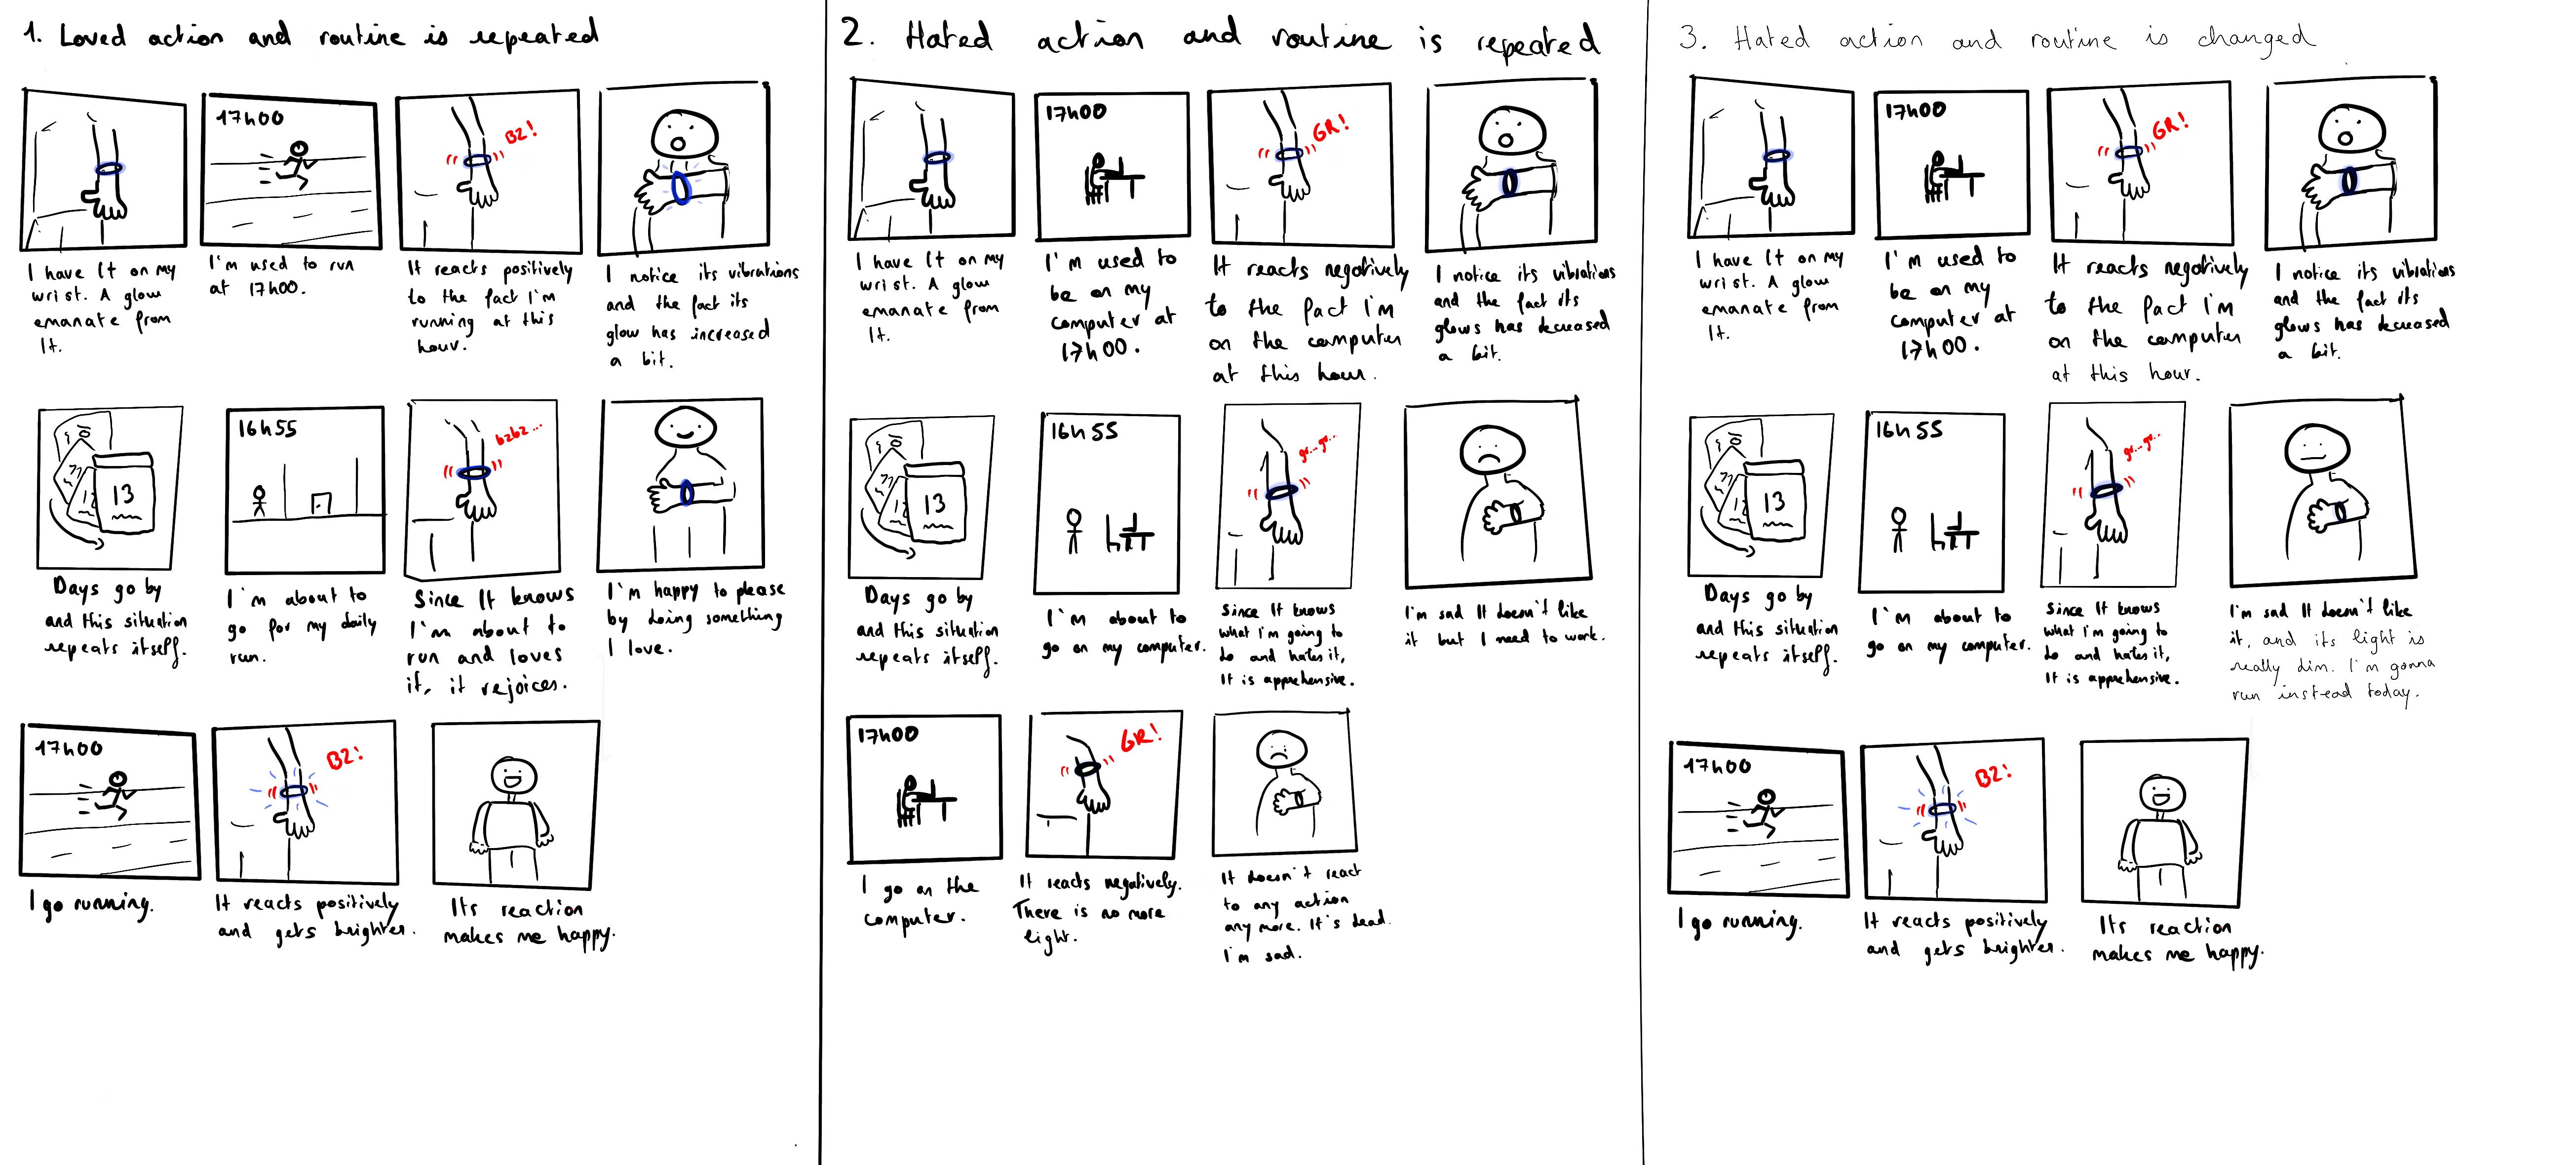 1. Loved action and routine is repeated
17h00
BZ!
I have It on my
wrist. A glow
emanate from
It.
I'm used to run
at 17h00.
It reacts positively
to the fact I'm
running at this
hour.
I notice its vibrations
and the fact its
glow has increased
a bit.
13
16h55
bzbz...
Days go by
and this situation
repeats itself.
I'm about to
go for my daily
run.
Since It knows
I'm about to
run and loves
it, it rejoices.
I'm happy to please
by doing something
I love.
17h00
BZ!
I go running.
It reacts positively
and gets brighter.
Its reaction
makes me happy.
2. Hated action and routine is repeated
17h00
GR!
I have It on my
wrist. A glow
emanate from
It.
I'm used to
be on my
computer at
17h00.
It reacts negatively
to the fact I'm
on the computer
at this hour.
I notice its vibrations
and the fact its
glows has decreased
a bit.
13
16h55
gr...gr...
Days go by
and this situation
repeats itself.
I'm about to
go on my computer.
Since It knows
what I'm going to
do and hates it,
It is apprehensive.
I'm sad It doesn't like
it but I need to work.
17h00
GR!
I go on the
computer.
It reacts negatively.
There is no more
light.
It doesn't react
to any action
any more. It's dead.
I'm sad.
3. Hated action and routine is changed
17h00
GR!
I have It on my
wrist. A glow
emanate from
It.
I'm used to
be on my
computer at
17h00.
It reacts negatively
to the fact I'm
on the computer
at this hour.
I notice its vibrations
and the fact its
glows has decreased
a bit.
13
16h55
gr...gr...
Days go by
and this situation
repeats itself.
I'm about to
go on my computer.
Since It knows
what I'm going to
do and hates it,
It is apprehensive.
I'm sad It doesn't like
it, and its light is
really dim. I'm gonna
run instead today.
17h00
BZ!
I go running.
It reacts positively
and gets brighter.
Its reaction
makes me happy.